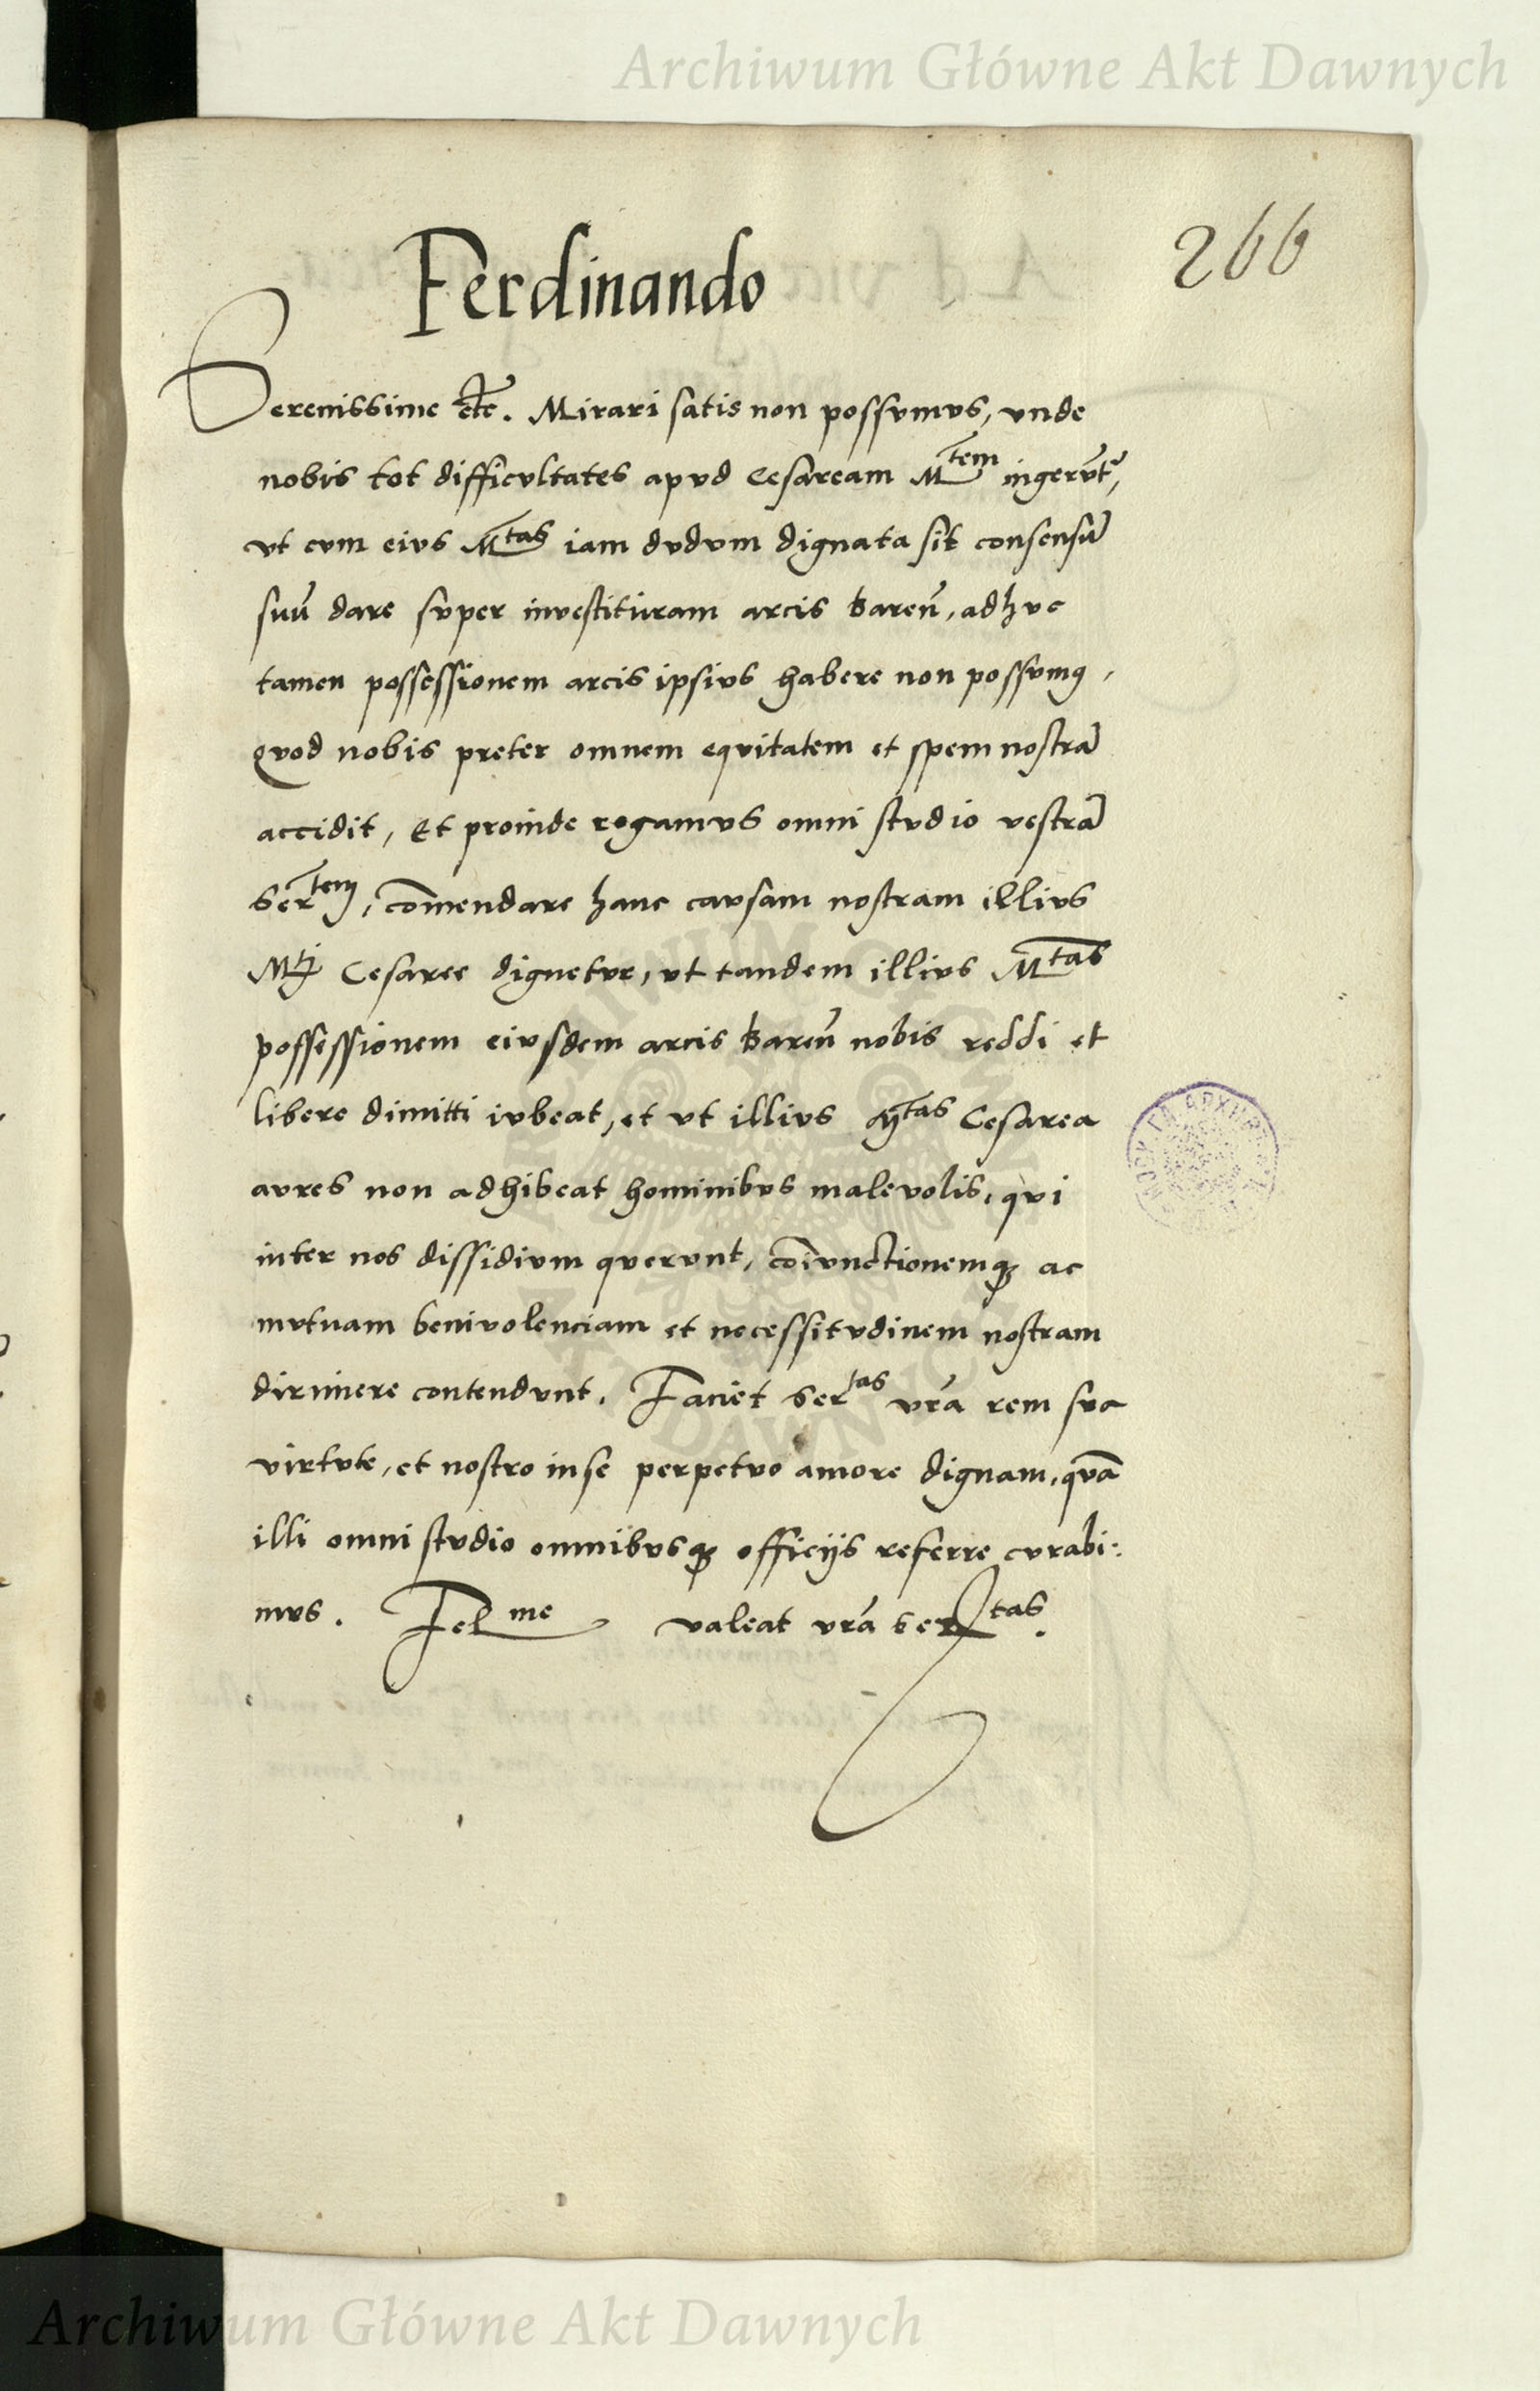 Archiwum Główne Akt Dawnych
266
Ferdinando
Serenissime etc. Mirari satis non possvmvs, vnde
nobis tot difficvltates apvd Cesaream M^tem ingerūt^r,
vt cvm eivs M^tas iam dvdvm dignata sit consensū
suū dare svper investituram arcis Bareñ, adhvc
tamen possessionem arcis ipsivs habere non possvmꝰ,
qvod nobis preter omnem eqvitatem et spem nostrā
accidit, Et proinde rogamvs omni stvdio vestrā
Ser^tem, cōmendare hanc cavsam nostram illivs
M^ti Cesaree dignetvr, vt tandem illivs M^tas
possessionem eivsdem arcis Bareñ nobis reddi et
libere dimitti ivbeat, et vt illivs M^tas Cesarea
avres non adhibeat hominibvs malevolis, qvi
inter nos dissidivm qvervnt, cōivnctionemqꝫ ac
mvtvam benivolenciam et necessitvdinem nostram
dirimere contendvnt. Faciet Ser^tas vrā rem sva
virtvte, et nostro in se perpetvo amore dignam, qvā
illi omni stvdio omnibvsqꝫ officijs referre cvrabi:
mvs. Fel^me valeat vrā Ser^tas.
ARCHIWUM GŁÓWNE
AKT DAWNYCH
Archiwum Główne Akt Dawnych